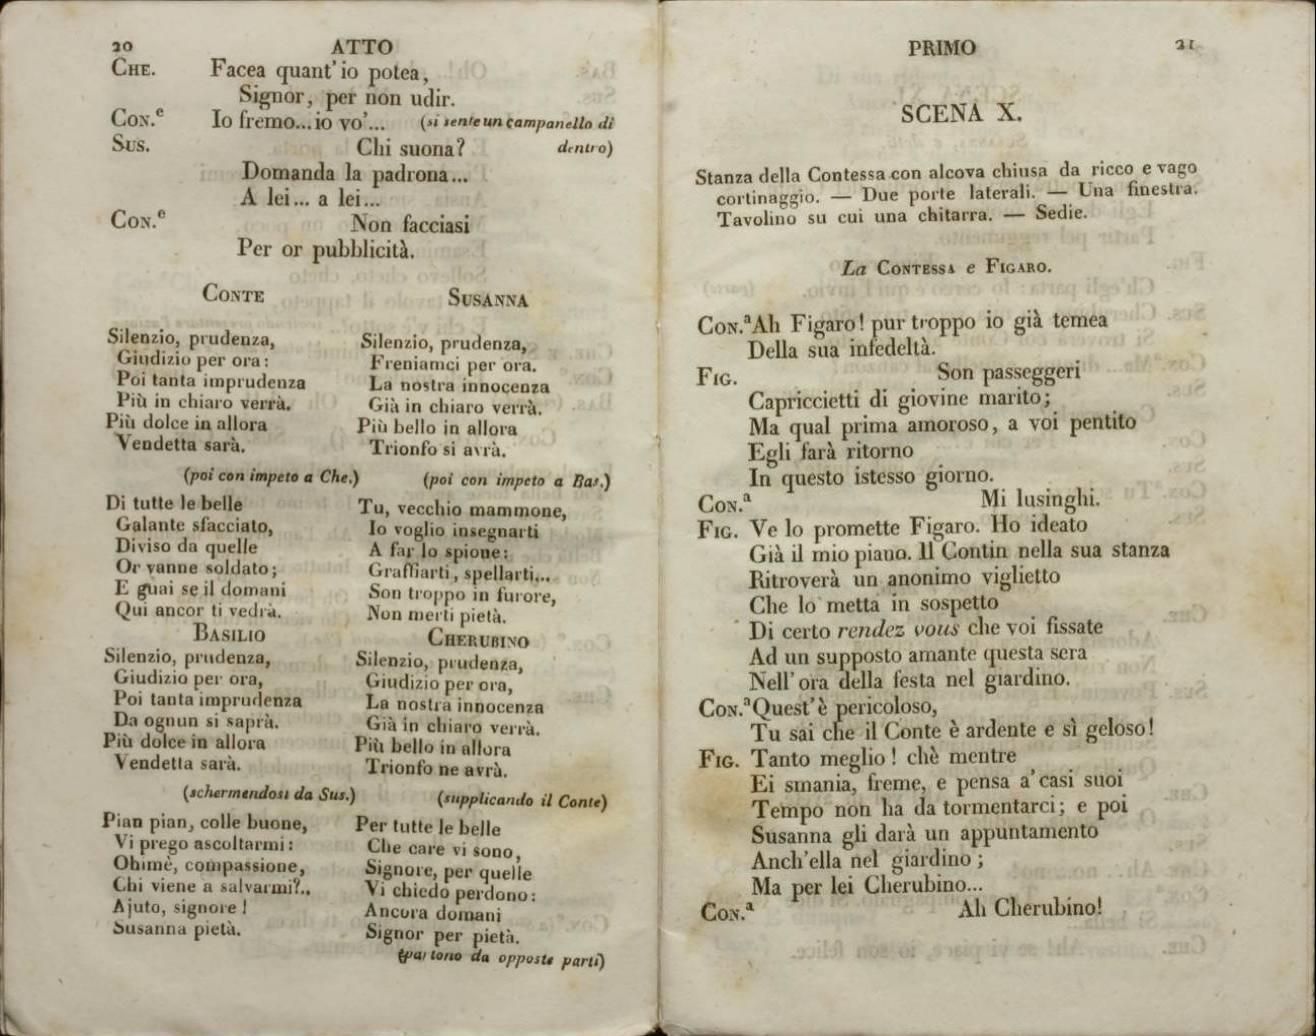 20 ATTO
CHE. Facea quant' io potea,
Signor, per non udir.
CON.e Io fremo... io vo'... (si sente un campanello di
SUS. Chi suona? dentro)
Domanda la padrona...
A lei... a lei...
CON.e Non facciasi
Per or pubblicità.
CONTE
Silenzio, prudenza,
Giudizio per ora:
Poi tanta imprudenza
Più in chiaro verrà.
Più dolce in allora
Vendetta sarà.
(poi con impeto a Che.)
Di tutte le belle
Galante sfacciato,
Diviso da quelle
Or vanne soldato;
E guai se il domani
Qui ancor ti vedrà.
SUSANNA
Silenzio, prudenza,
Freniamci per ora.
La nostra innocenza
Già in chiaro verrà.
Più bello in allora
Trionfo si avrà.
(poi con impeto a Bas.)
Tu, vecchio mammone,
Io voglio insegnarti
A far lo spione:
Graffiarti, spellarti...
Son troppo in furore,
Non merti pietà.
BASILIO
Silenzio, prudenza,
Giudizio per ora,
Poi tanta imprudenza
Da ognun si saprà.
Più dolce in allora
Vendetta sarà.
(schermendosi da Sus.)
Pian pian, colle buone,
Vi prego ascoltarmi:
Ohimè, compassione,
Chi viene a salvarmi?..
Ajuto, signore!
Susanna pietà.
CHERUBINO
Silenzio, prudenza,
Giudizio per ora,
La nostra innocenza
Già in chiaro verrà.
Più bello in allora
Trionfo ne avrà.
(supplicando il Conte)
Per tutte le belle
Che care vi sono,
Signore, per quelle
Vi chiedo perdono:
Ancora domani
Signor per pietà.
(partono da opposte parti)
PRIMO 21
SCENA X.
Stanza della Contessa con alcova chiusa da ricco e vago
cortinaggio. — Due porte laterali. — Una finestra.
Tavolino su cui una chitarra. — Sedie.
La CONTESSA e FIGARO.
CON.a Ah Figaro! pur troppo io già temea
Della sua infedeltà.
FIG. Son passeggeri
Capriccietti di giovine marito;
Ma qual prima amoroso, a voi pentito
Egli farà ritorno
In questo istesso giorno.
CON.a Mi lusinghi.
FIG. Ve lo promette Figaro. Ho ideato
Già il mio piano. Il Contin nella sua stanza
Ritroverà un anonimo viglietto
Che lo metta in sospetto
Di certo rendez vous che voi fissate
Ad un supposto amante questa sera
Nell' ora della festa nel giardino.
CON.a Quest' è pericoloso,
Tu sai che il Conte è ardente e sì geloso!
FIG. Tanto meglio! chè mentre
Ei smania, freme, e pensa a' casi suoi
Tempo non ha da tormentarci; e poi
Susanna gli darà un appuntamento
Anch'ella nel giardino;
Ma per lei Cherubino...
CON.a Ah Cherubino!